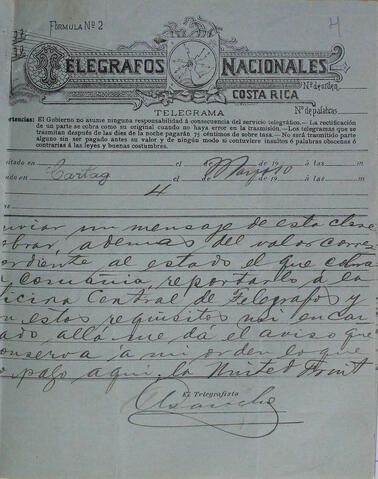 FÓRMULA Nº 2
4
TELEGRAFOS NACIONALES
Nº de orden
COSTA RICA
Nº de palabras
TELEGRAMA
rtencias: El Gobierno no asume ninguna responsabilidad á consecuencia del servicio telegráfico.—La rectificación
de un parte se cobra como su original cuando no haya error en la trasmisión.—Los telegramas que se
trasmitan después de las diez de la noche pagarán 15 céntimos de sobre tasa.—No será trasmitido parte
alguno sin ser pagado antes su valor y de ningún modo si contuviere insultos ó palabras obscenas ó
contrarias á las leyes y buenas costumbres.
sitado en Cartag el de Mayo 10 á las m
do en el 4 de de 19 á las m
nviar un mensaje de esta clase
obrar, además del valor corres
ndiente al estado el que cobra
comunica, reportarlo á la
ficina Central de Telégrafos y
n estos requisitos mi encar
ado allá me dá el aviso que
onserva á mi orden lo que
pago aquí. la United Fruit
El Telegrafista